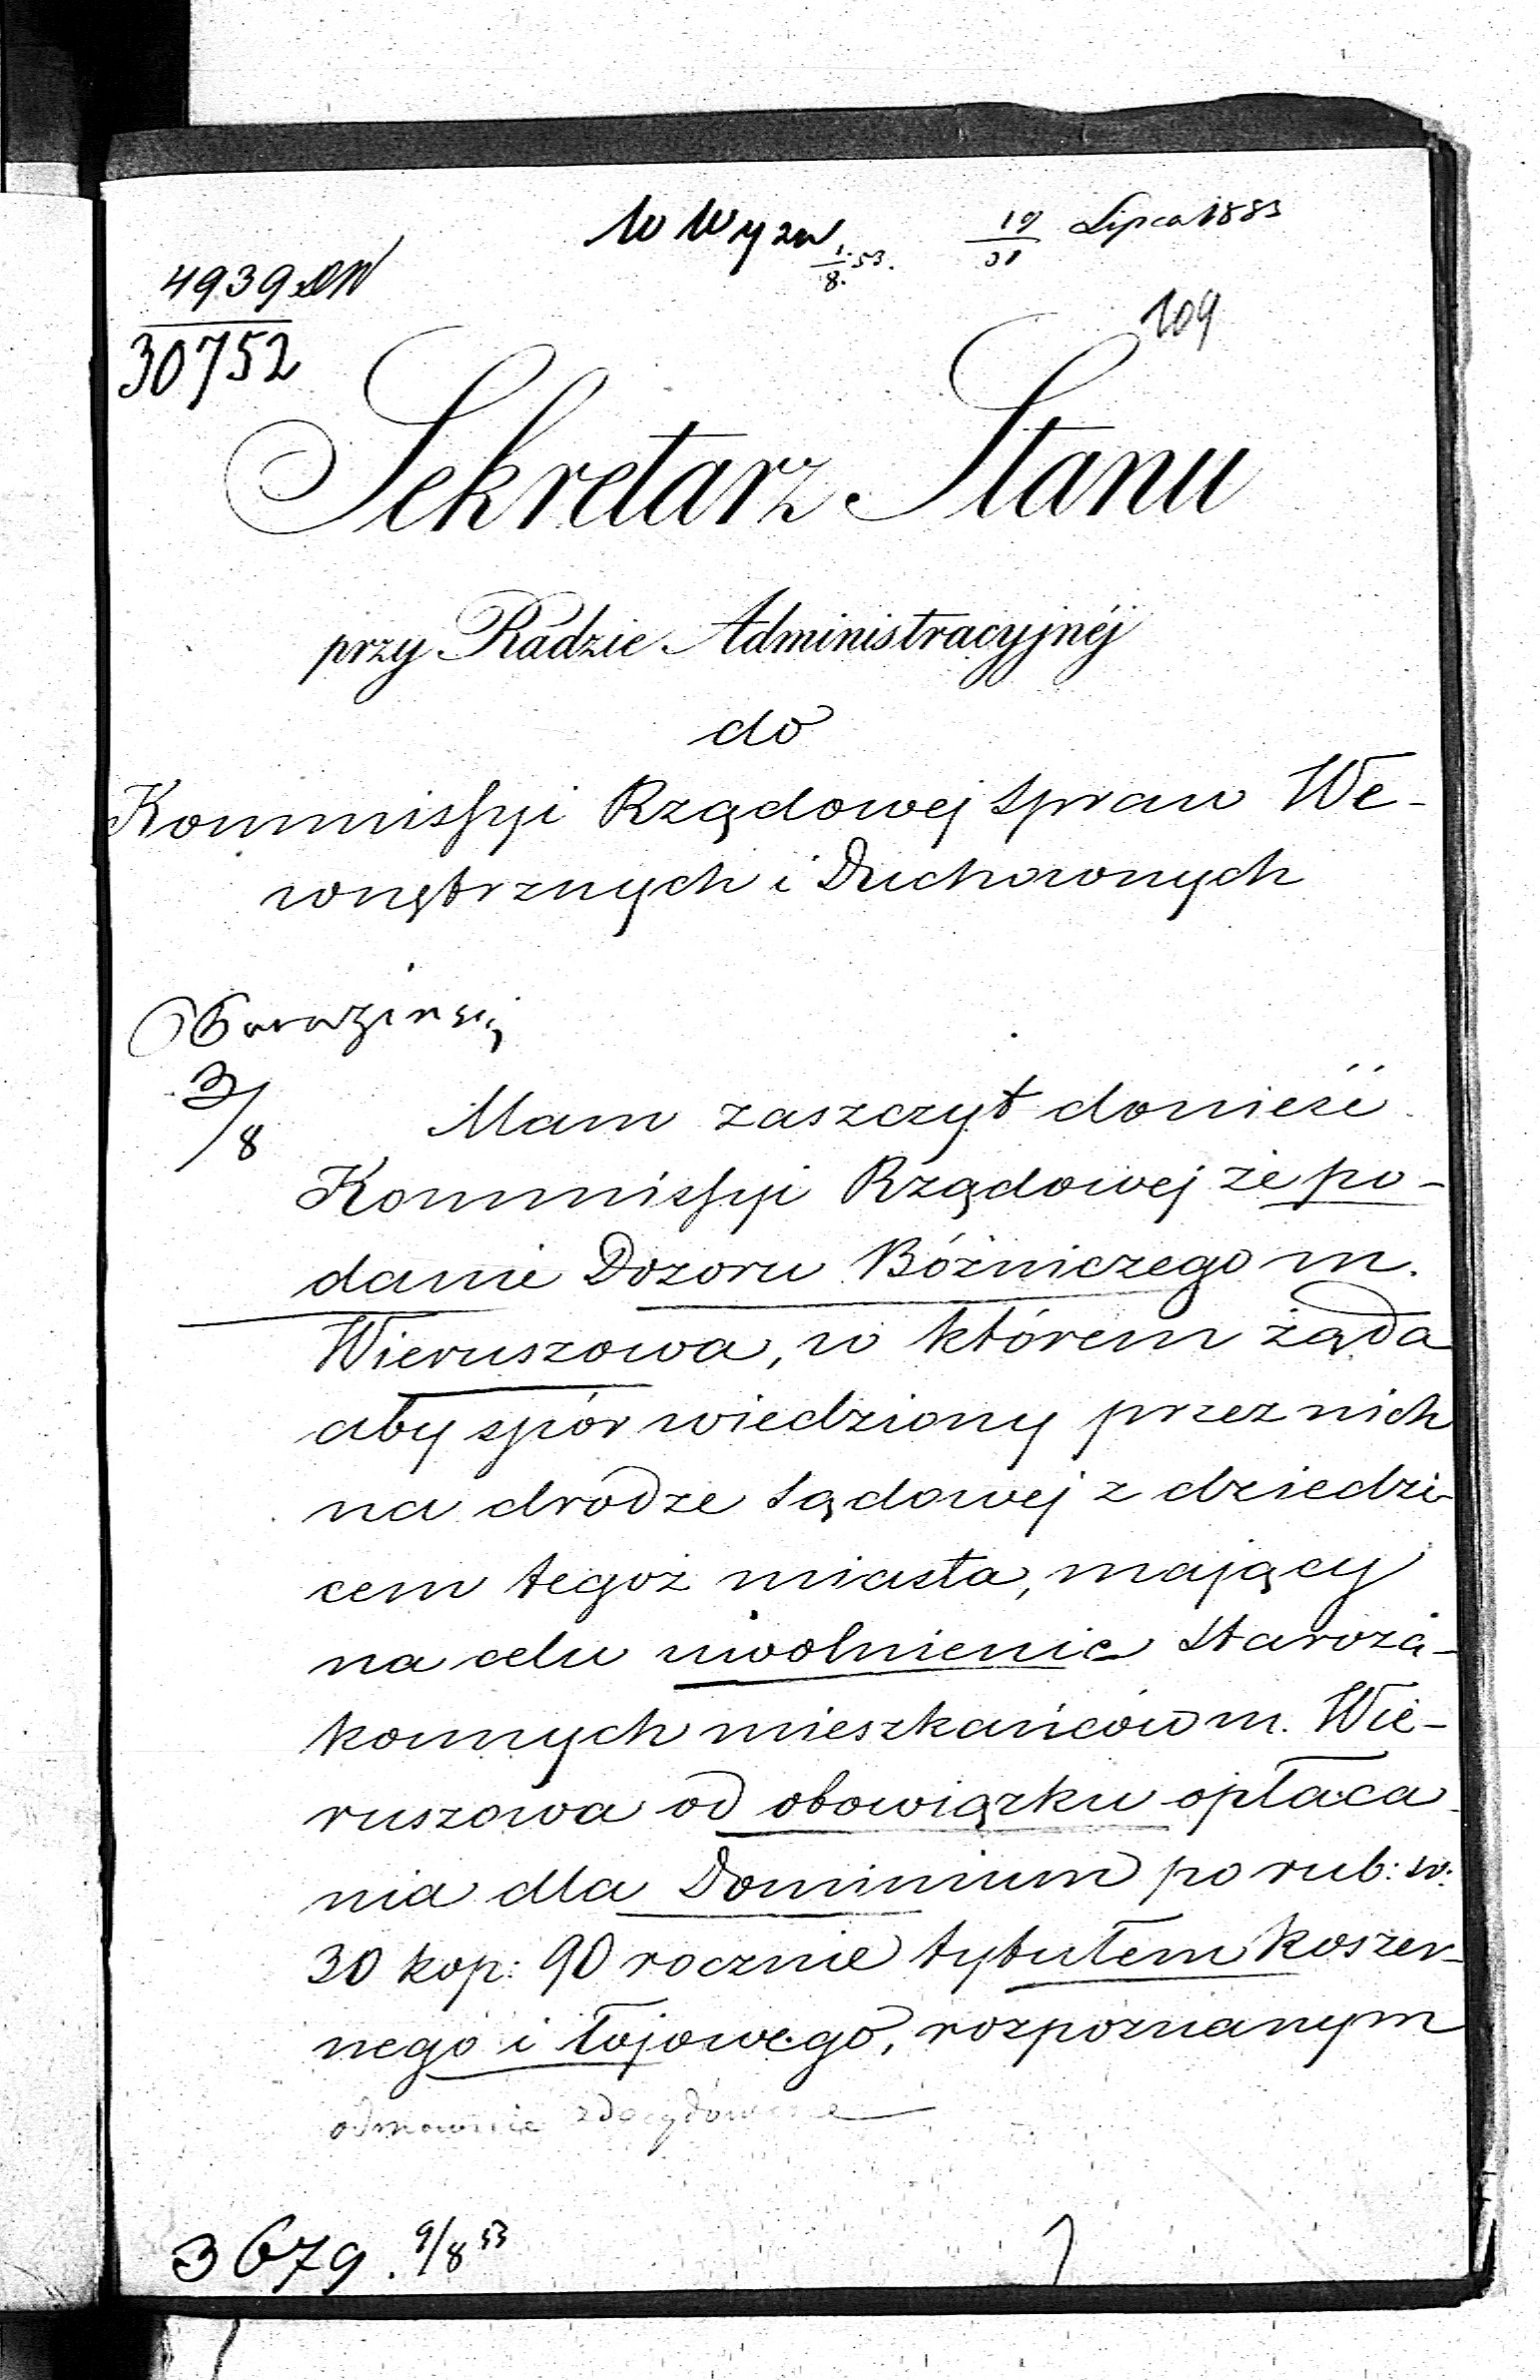 W Wyzn 1/8. 53.
19/31 Lipca 1853
4939
30752
109
Sekretarz Stanu
przy Radzie Administracyjnéj
do
Kommissyi Rządowej Spraw We-
wnętrznych i Duchownych
3/8
Mam zaszczyt donieść
Kommissyi Rządowej że po-
danie Dozoru Bóżniczego m.
Wieruszowa, w którem żąda
aby spór wiedziony przez nich
na drodze Sądowej z dziedzi-
cem tegoż miasta, mający
na celu uwolnienie Staroza-
konnych mieszkańców m. Wie-
ruszowa od obowiązku opłaca-
nia dla Dominium po rub: sr:
30 kop: 90 rocznie tytułem koszer-
nego i łojowego, rozpoznanym
odmownie zdecydowane
3679. 9/8 53